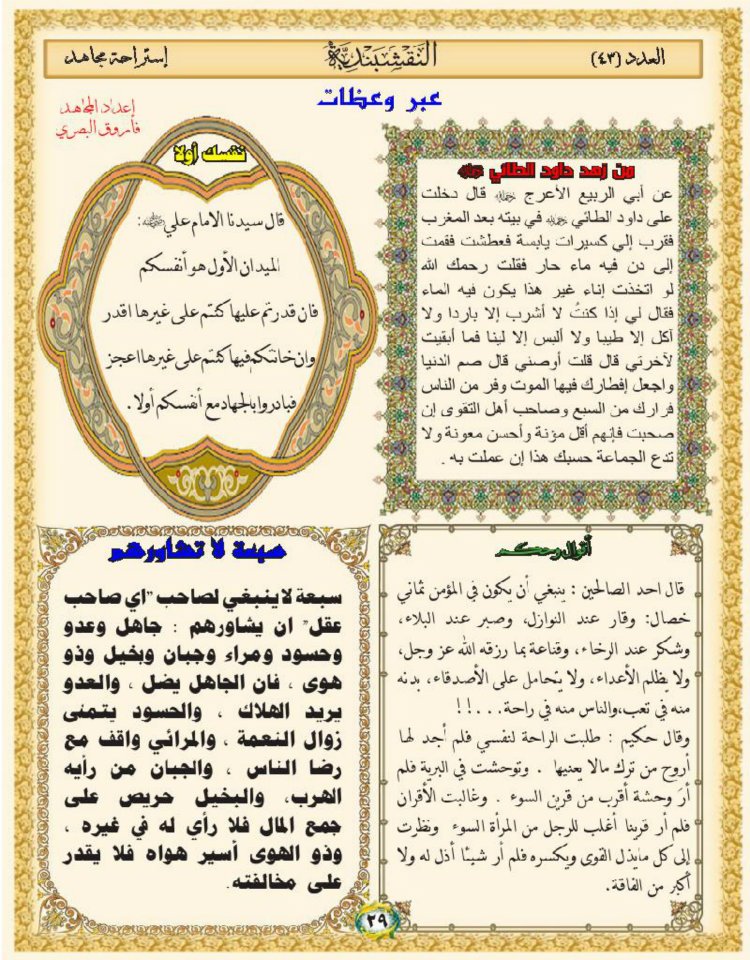 العدد (٤٣)
النقشبندية
إستراحة مجاهد
عبر وعظات
إعداد المجاهد
فاروق البصري
من زهد داود الطائي
عن أبي الربيع الأعرج قال دخلت
على داود الطائي في بيته بعد المغرب
فقرب إلي كسيرات يابسة فعطشت فقمت
إلى دن فيه ماء حار فقلت رحمك الله
لو اتخذت إناء غير هذا يكون فيه الماء
فقال لي إذا كنتُ لا أشرب إلا باردا ولا
آكل إلا طيبا ولا ألبس إلا لينا فما أبقيت
لآخرتي قال قلت أوصني قال صم الدنيا
واجعل إفطارك فيها الموت وفر من الناس
فرارك من السبع وصاحب أهل التقوى إن
صحبت فإنهم أقل مؤنة وأحسن معونة ولا
تدع الجماعة حسبك هذا إن عملت به .
نفسك أولا
قال سيدنا الامام علي :
الميدان الأول هو أنفسكم
فان قدرتم عليها كنتم على غيرها اقدر
وان خانتكم فيها كنتم على غيرها اعجز
فبادروا بالجهاد مع أنفسكم أولا .
أقوال وحكم
قال احد الصالحين : ينبغي أن يكون في المؤمن ثماني
خصال: وقار عند النوازل، وصبر عند البلاء،
وشكر عند الرخاء، وقناعة بما رزقه الله عز وجل،
ولا يظلم الأعداء، ولا يتحامل على الأصدقاء، بدنه
منه في تعب،والناس منه في راحة...!!
وقال حكيم : طلبت الراحة لنفسي فلم أجد لها
أروح من ترك مالا يعنيها . وتوحشت في البرية فلم
أرَ وحشة أقرب من قرين السوء . وغالبت الأقران
فلم أر قرينا أغلب للرجل من المرأة السوء ونظرت
إلى كل مايذل القوى ويكسره فلم أر شيئا أذل له ولا
أكبر من الفاقة.
سبعة لا تشاورهم
سبعة لاينبغي لصاحب "اي صاحب
عقل" ان يشاورهم : جاهل وعدو
وحسود ومراء وجبان وبخيل وذو
هوى ، فان الجاهل يضل ، والعدو
يريد الهلاك ، والحسود يتمنى
زوال النعمة ، والمرائي واقف مع
رضا الناس ، والجبان من رأيه
الهرب، والبخيل حريص على
جمع المال فلا رأي له في غيره ،
وذو الهوى أسير هواه فلا يقدر
على مخالفته.
٢٩